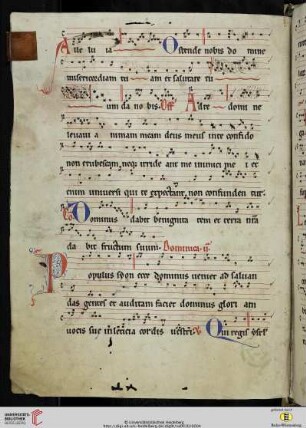 Alle lu ia Ostende nobis do mine
misericordiam tu am et salutare tu
um da no bis. Off Ad te domi ne
levavi a nimam meam deus meus in te confido
non erubescam neq irride ant me inimici me i et
enim universi qui te expectant non confunden tur
Co Dominus dabit benignita tem et terra nra
da bit fructum suum. Dominica ii
Populus syon ecce dominus veniet ad salvan
das gentes et auditam faciet dominus glori am
vocis sue in leticia cordis vestri. Qui regis ysrl
UNIVERSITÄTS-
BIBLIOTHEK
HEIDELBERG
© Universitätsbibliothek Heidelberg
Baden-Württemberg